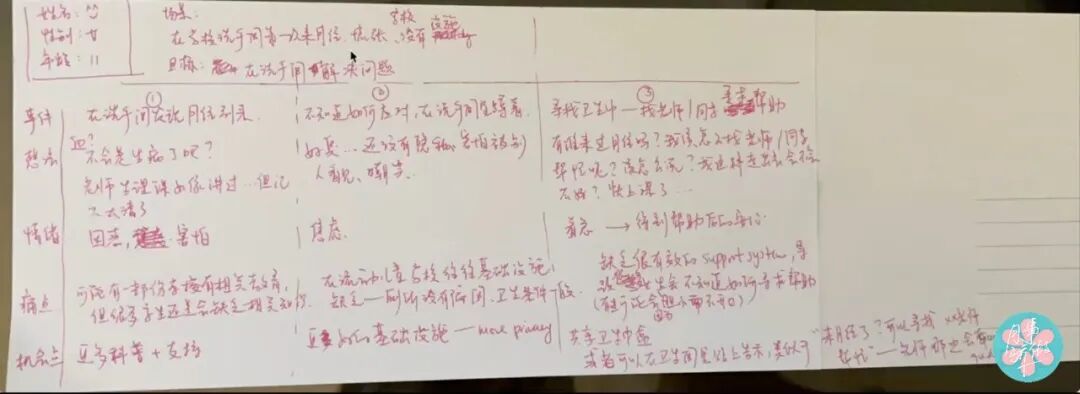 姓名：
性别：女
年龄：11
场景：
学校
在学校洗手间第一次来月经，慌张、没有
目标：在洗手间解决问题
① ② ③
事件 在洗手间发现月经到来 不知道如何应对，在洗手间坐等着 寻找卫生巾—找老师/同学寻求帮助
想法 不会是生病了吧？
老师生理课好像讲过…但记
不太清了
好臭…还没有隐私，害怕被别
人看见、嘲笑
有谁来过月经吗？我该怎么找老师/同学
帮忙呢？该怎么说？我这样走出去会不会
不好？快上课了…
情绪 困惑，害怕 焦虑 着急 → 得到帮助后的安心
痛点 可能有一部份学校有相关教育，
但很多学生还是会缺乏相关知识
在流动儿童学校往往基础设施
缺乏—厕所没有隔间、卫生条件一般
缺乏很有效的support system，导
致学生会不知道如何寻求帮助
机会点 更多科普+支持
更好的基础设施—more privacy
共享卫生巾盒
或者可以在卫生间里贴上告示，类似于
"来月经了？可以寻找xx老师
帮忙"